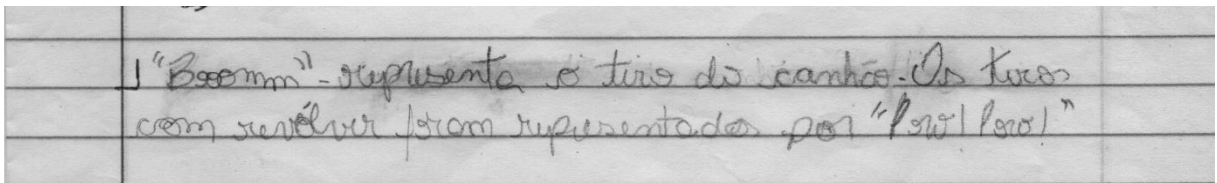 "Booomm"-representa o tiro do canhão. Os tiros
com revólver foram representados por "Pow! Pow!"